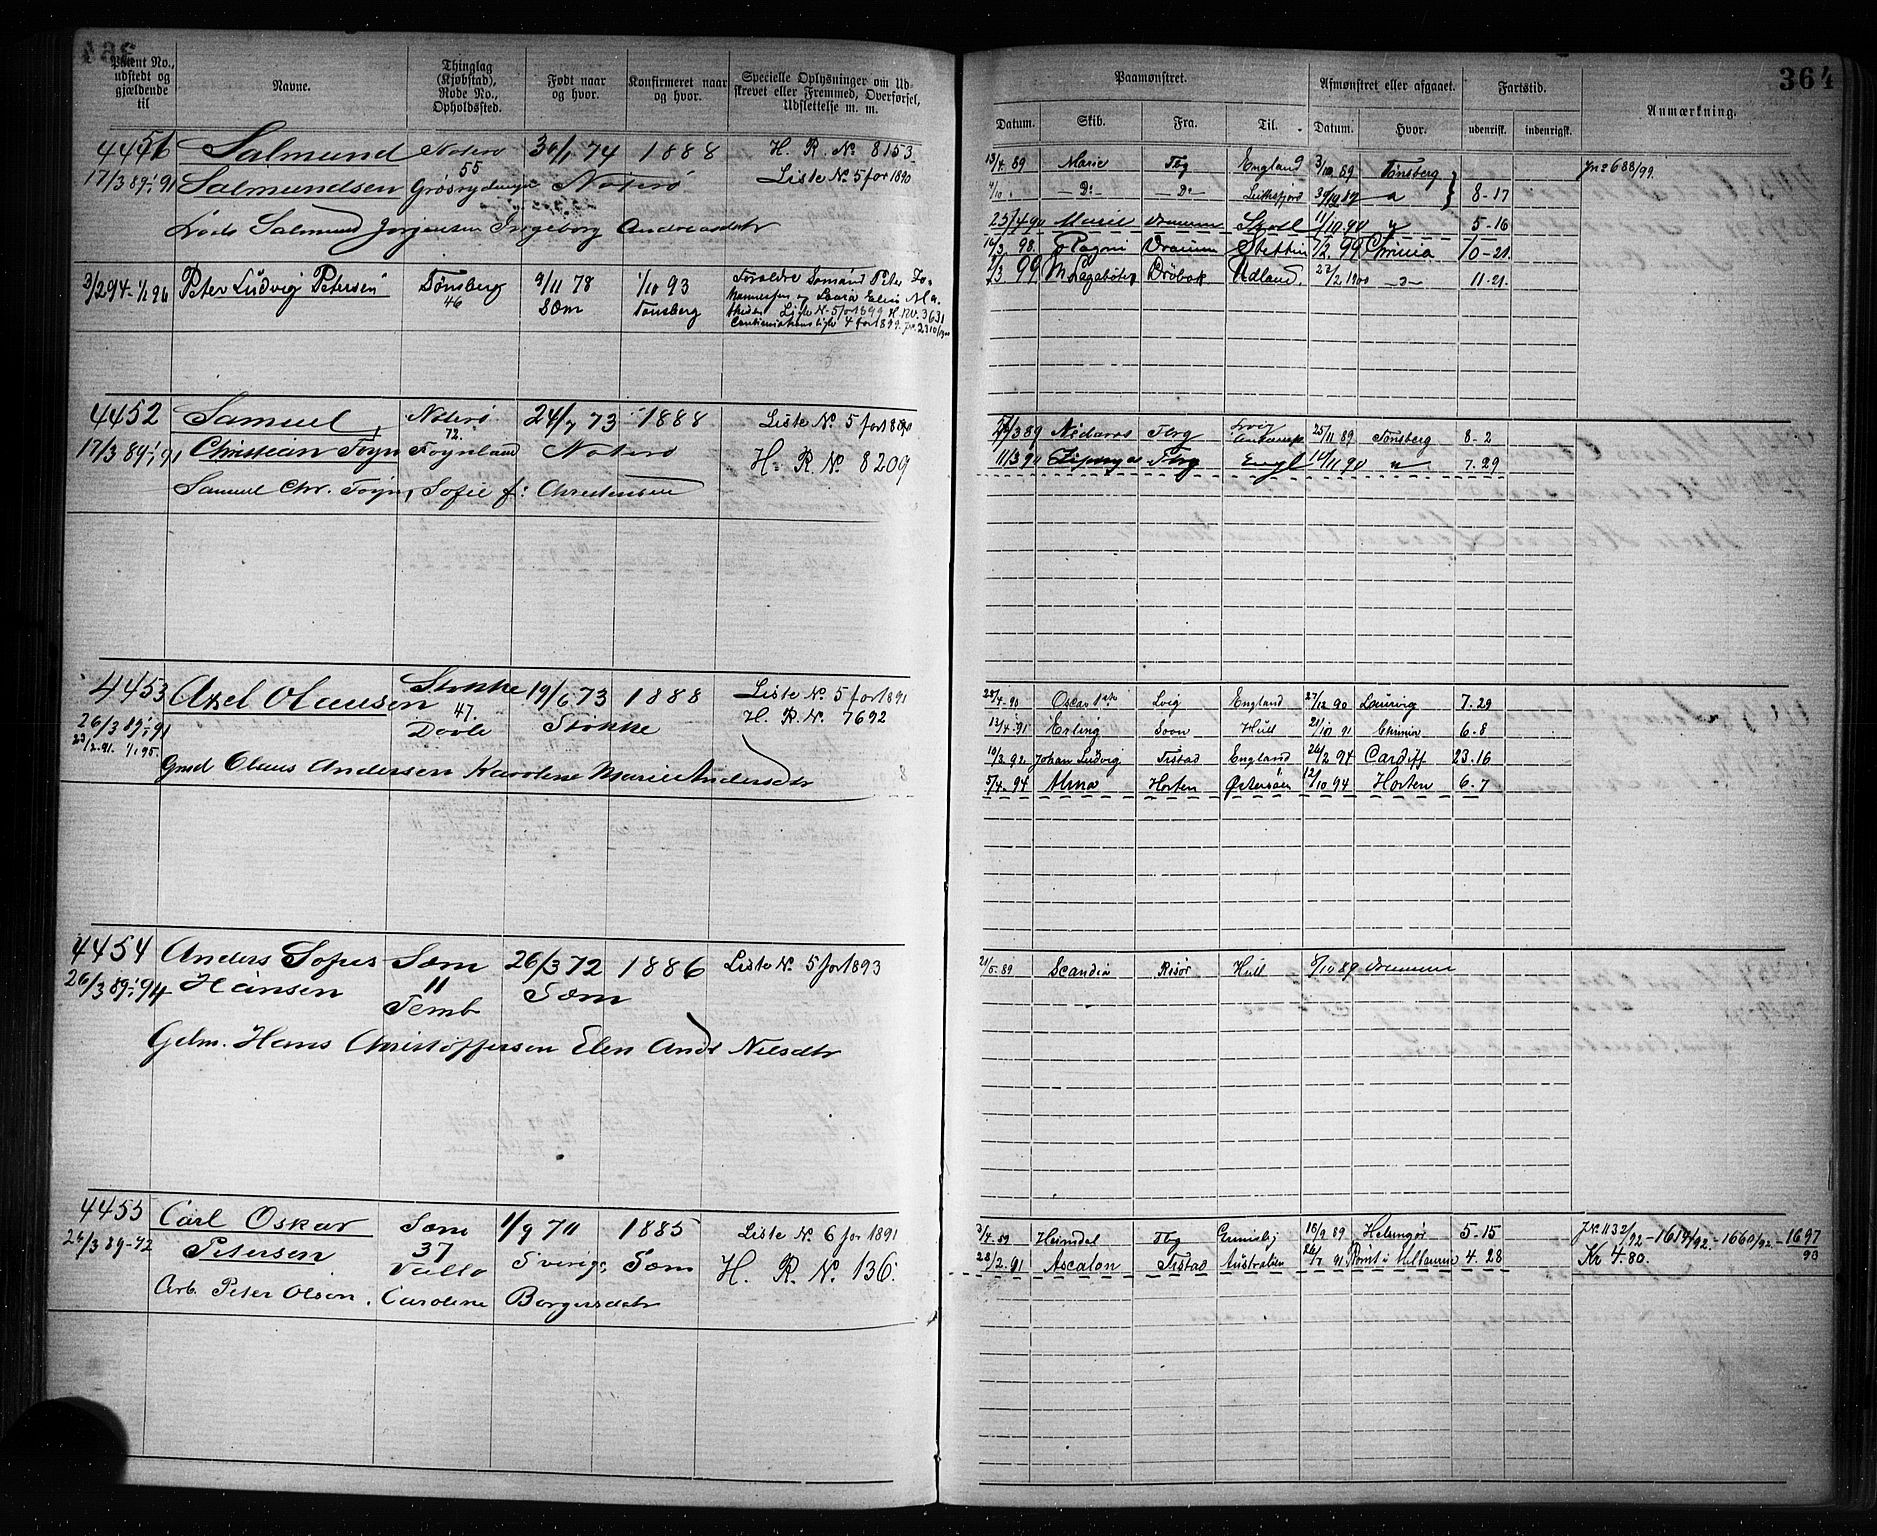 364
Patent No., udstedt og gjældende til
Navne.
Thinglag (Kjøbstad), Rode No., Opholdssted.
Født naar og hvor.
Konfirmeret naar og hvor.
Specielle Oplysninger om Udskrevet eller Fremmed, Overførsel, Udslettelse m. m.
Paamønstret.
Afmønstret eller afgaaet.
Fartstid.
Anmærkning.
Datum. Skib. Fra. Til. Datum. Hvor. udenrigsk. indenrigsk.
Salmund Nøterø 74 1888 H. R. No 8153
17/3 89-1/1 91 Salmundsen 55 Nøterø Liste No. 5 for 1890
Lods Salmund Jørgensen Ingeborg Andreasdtr
3/2 94-1/1 96 Peter Ludvig Petersen Tønsberg 9/11 78 1/10 93
46 Sæm Tønsberg
4452 Samuel Nøterø 24/7 73 1888 Liste No. 5 for 1890
17/3 89-1/1 91 Christian Føyn 72. Føynland Nøterø H. R. No 8209
Samuel Chr. Føyn, Sofie f: Christensen
4453 Axel Olausen Stokke 19/6 73 1888 Liste No. 5 for 1891
26/3 89-1/1 91 47. Stokke H. R. No. 7692
23/2 91. 1/1 95. Dovle
Gmd Olaus Andersen Karoline Marie Andersdtr
4454 Anders Sofus Sæm 26/3 72 1886 Liste No. 5 for 1893
26/3 89-1/1 94 Hansen 11 Sæm
Gdm. Hans Christoffersen Elen Andr Nilsdtr
4455 Carl Oskar Sæm 1/9 70 1885 Liste No. 6 for 1891
26/3 89-92 Petersen 37 Vallø Sverige Sæm H. R. No. 136.
Arb. Peter Olson, Caroline Børgersdatr
13/4 89 Marie Tbg England 3/10 89 Tønsberg Jno 688/99.
4/10 — Do — Do 8-17
25/4 90 Marie Drammen 11/10 90 5-16
16/3 98. Ragni Drammen Stettin 7/2 99 Chrinia 10-21
1/3 99 Drøbak Udland. 27/2 1900 11-21.
3 89 Nidaros Tbrg 25/11 89 Tønsberg 8-2
11/3 90 Tbrg Engl 10/11 90 7.29
28/4. 90 Oscar Lvig England 27/12 90 Laurvig 7.29
13/4. 91 Erling Soon Hull 21/10 91 Chrinia 6-8
10/3 92. Johan Ludvig Frstad England 26/2 94 Cardiff 23.16
5/4. 94 Alma Horten Østersøen 12/10 94 Horten 6.7
21/5. 89 Scandia Risør Hull 8/10 89 Drammen
3/4. 89 Heimdal Tbg Grimsby 18/9 89 Helsingør 5.15 J.No. 1132/92-1614/92.-1660/92.-1697/93
28/2. 91 Ascalon Frstad Australien 26/7 91 Rømt i Melbourne 4.28 Kr 4.80.